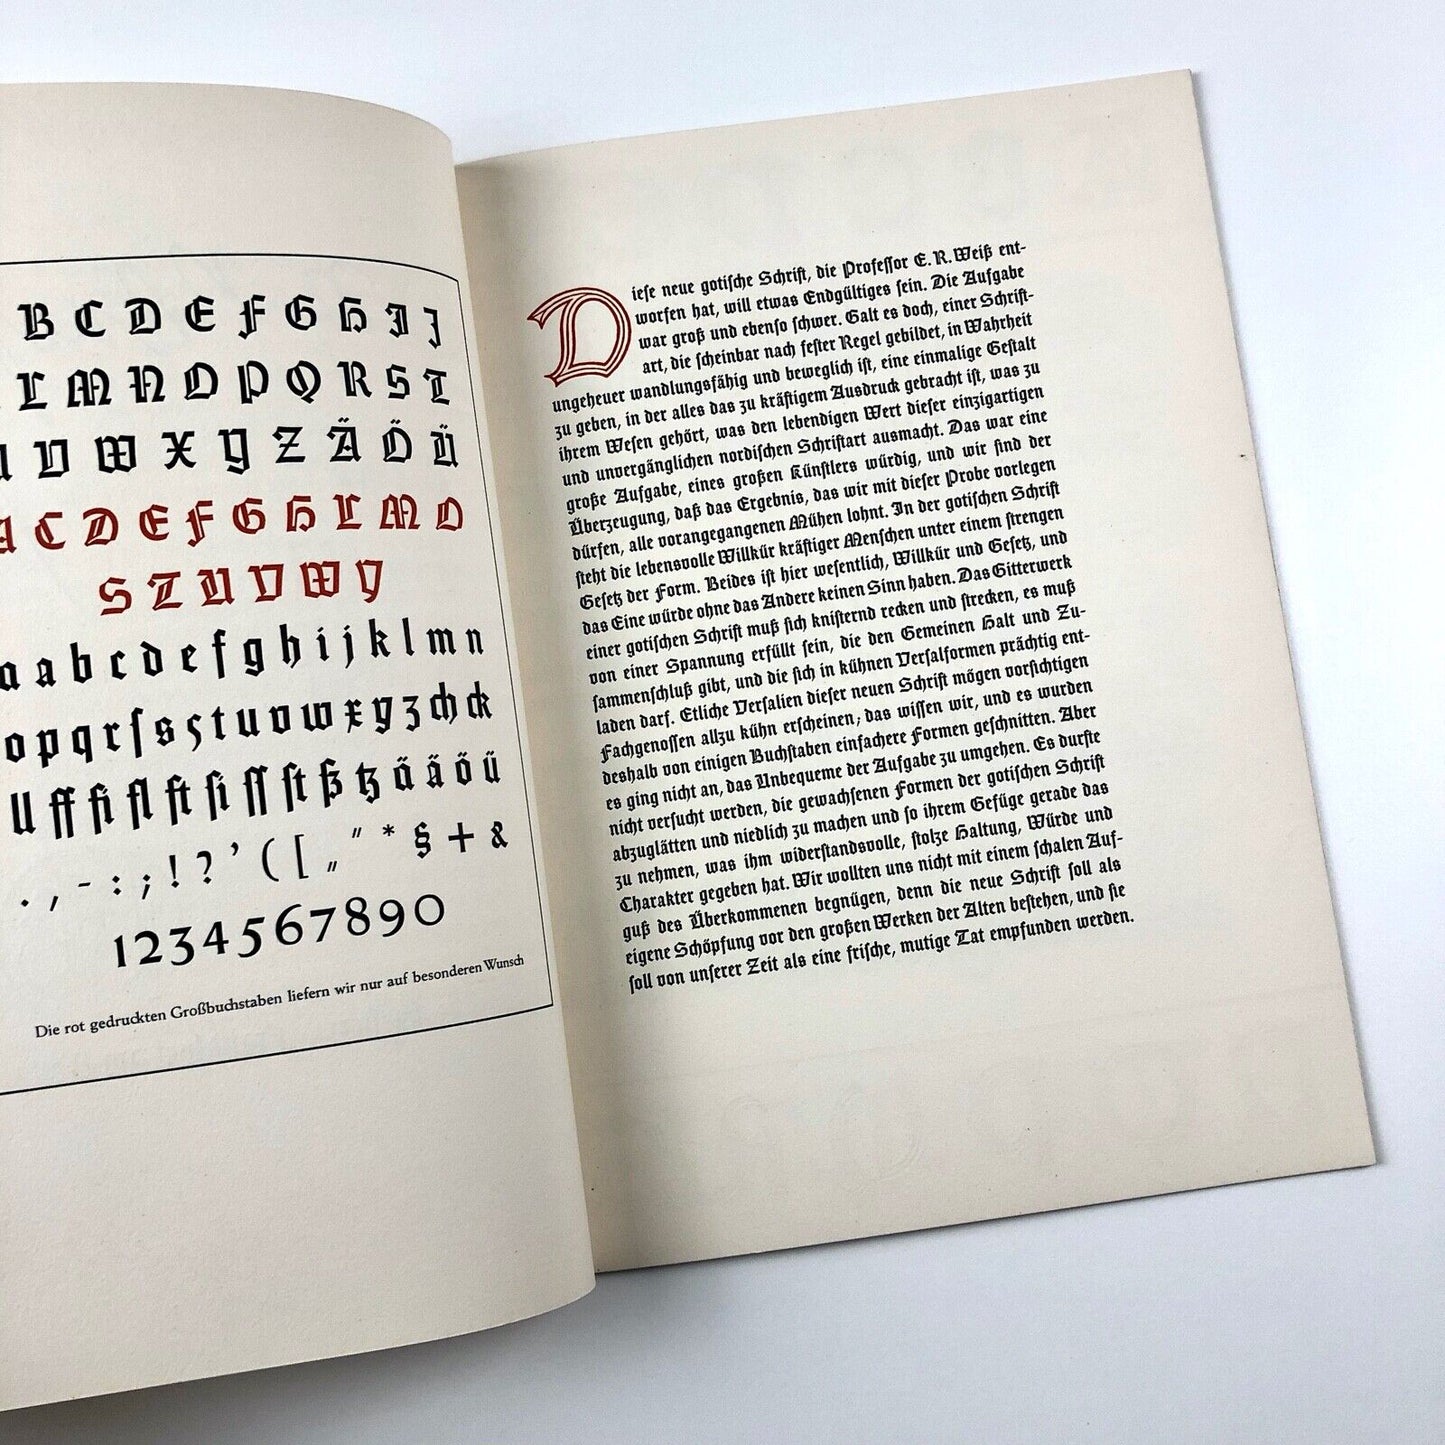 B C D E F G H I J
L M N O P Q R S T
U V W X Y Z Ä Ö Ü
A C D E F G H L M O
S T U V W Y
a a b c d e f g h i j k l m n
o p q r ſ s ʒ t u v w x y z ch ck
ll ff fi fl ft ſi ſſ ſt ß tz ä ä ö ü
. , - : ; ! ? ’ ( [ „ “ * § + &
1234567890
Die rot gedruckten Großbuchstaben liefern wir nur auf besonderen Wunsch
Dieſe neue gotiſche Schrift, die Profeſſor E. R. Weiß ent-
worfen hat, will etwas Endgültiges ſein. Die Aufgabe
war groß und ebenſo ſchwer. Galt es doch, einer Schrift-
art, die ſcheinbar nach feſter Regel gebildet, in Wahrheit
ungeheuer wandlungsfähig und beweglich iſt, eine einmalige Geſtalt
zu geben, in der alles das zu kräftigem Ausdruck gebracht iſt, was zu
ihrem Weſen gehört, was den lebendigen Wert dieſer einzigartigen
und unvergänglichen nordiſchen Schriftart ausmacht. Das war eine
große Aufgabe, eines großen Künſtlers würdig, und wir ſind der
Überzeugung, daß das Ergebnis, das wir mit dieſer Probe vorlegen
dürfen, alle vorangegangenen Mühen lohnt. In der gotiſchen Schrift
ſteht die lebensvolle Willkür kräftiger Menſchen unter einem ſtrengen
Geſetz der Form. Beides iſt hier weſentlich, Willkür und Geſetz, und
das Eine würde ohne das Andere keinen Sinn haben. Das Gitterwerk
einer gotiſchen Schrift muß ſich kniſternd recken und ſtrecken, es muß
von einer Spannung erfüllt ſein, die den Gemeinen Halt und Zu-
ſammenſchluß gibt, und die ſich in kühnen Verſalformen prächtig ent-
laden darf. Etliche Verſalien dieſer neuen Schrift mögen vorſichtigen
Fachgenoſſen allzu kühn erſcheinen; das wiſſen wir, und es wurden
deshalb von einigen Buchſtaben einfachere Formen geſchnitten. Aber
es ging nicht an, das Unbequeme der Aufgabe zu umgehen. Es durfte
nicht verſucht werden, die gewachſenen Formen der gotiſchen Schrift
abzuglätten und niedlich zu machen und ſo ihrem Gefüge gerade das
zu nehmen, was ihm widerſtandsvolle, ſtolze Haltung, Würde und
Charakter gegeben hat. Wir wollten uns nicht mit einem ſchalen Auf-
guß des Überkommenen begnügen, denn die neue Schrift ſoll als
eigene Schöpfung vor den großen Werken der Alten beſtehen, und ſie
ſoll von unſerer Zeit als eine friſche, mutige Tat empfunden werden.